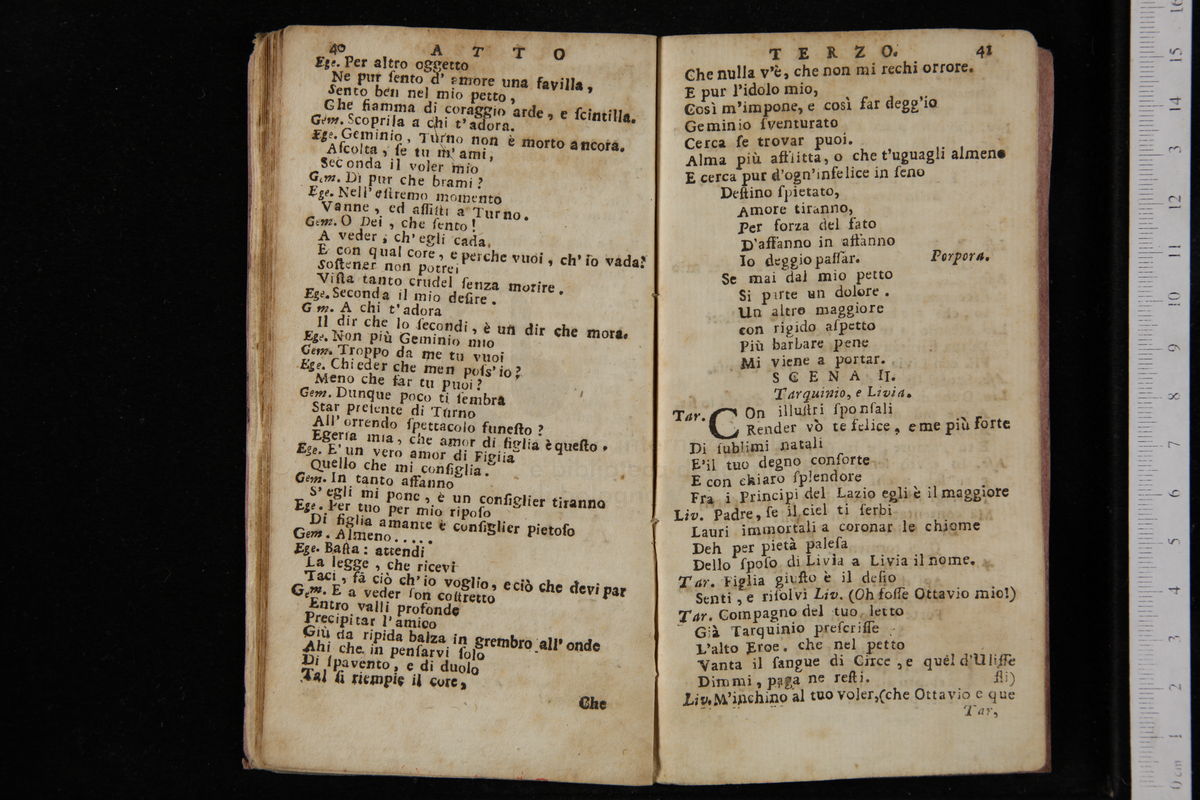 40 A T T O
Ege. Per altro oggetto
Ne pur ſento d' amore una favilla,
Sento ben nel mio petto,
Che fiamma di coraggio arde, e ſcintilla.
Gem. Scoprila a chi t'adora.
Ege. Geminio, Turno non è morto ancora.
Aſcolta, ſe tu m'ami,
Seconda il voler mio
Gem. Di pur che brami?
Ege. Nell'eſtremo momento
Vanne, ed aſſiſti a Turno.
Gem. O Dei, che ſento!
A veder, ch'egli cada,
E con qual core, e perche vuoi, ch'io vada?
Soſtener non potrei
Viſta tanto crudel ſenza morire.
Ege. Seconda il mio deſire.
G m. A chi t'adora
Il dir che lo ſecondi, è un dir che mora.
Ege. Non più Geminio mio
Gem. Troppo da me tu vuoi
Ege. Chieder che men poſs'io?
Meno che far tu puoi?
Gem. Dunque poco ti ſembra
Star preſente di Turno
All'orrendo ſpettacolo funeſto?
Egeria mia, che amor di figlia è queſto.
Ege. E'un vero amor di Figlia
Quello che mi conſiglia.
Gem. In tanto affanno
S'egli mi pone, è un conſiglier tiranno
Ege. Per tuo per mio ripoſo
Di figlia amante è conſiglier pietoſo
Gem. Almeno.....
Ege. Baſta: attendi
La legge, che ricevi
Taci, fà ciò ch'io voglio, e ciò che devi par
Gem. E a veder ſon coſtretto
Entro valli profonde
Precipitar l'amico
Giù da ripida balza in grembro all'onde
Ahi che in penſarvi ſolo
Di ſpavento, e di duolo
Tal ſi riempie il core,
Che
T E R Z O. 41
Che nulla v'è, che non mi rechi orrore.
E pur l'idolo mio,
Così m'impone, e così far degg'io
Geminio ſventurato
Cerca ſe trovar puoi.
Alma più afflitta, o che t'uguagli almeno
E cerca pur d'ogn'infelice in ſeno
Deſtino ſpietato,
Amore tiranno,
Per forza del fato
D'affanno in affanno
Io deggio paſſar. Porpora.
Se mai dal mio petto
Si parte un dolore.
Un altro maggiore
con rigido aſpetto
Più barbare pene
Mi viene a portar.
S C E N A II.
Tarquinio, e Livia.
Tar. COn illuſtri ſponſali
Render vò te felice, e me più forte
Di ſublimi natali
E'il tuo degno conſorte
E con chiaro ſplendore
Fra i Principi del Lazio egli è il maggiore
Liv. Padre, ſe il ciel ti ſerbi
Lauri immortali a coronar le chiome
Deh per pietà paleſa
Dello ſpoſo di Livia a Livia il nome.
Tar. Figlia giuſto è il deſio
Senti, e riſolvi Liv. (Oh foſſe Ottavio mio!)
Tar. Compagno del tuo letto
Già Tarquinio preſcriſſe
L'alto Eroe. che nel petto
Vanta il ſangue di Circe, e quel d'Uliſſe
Dimmi, paga ne reſti. ſti)
Liv. M'inchino al tuo voler, (che Ottavio e que
Tar,